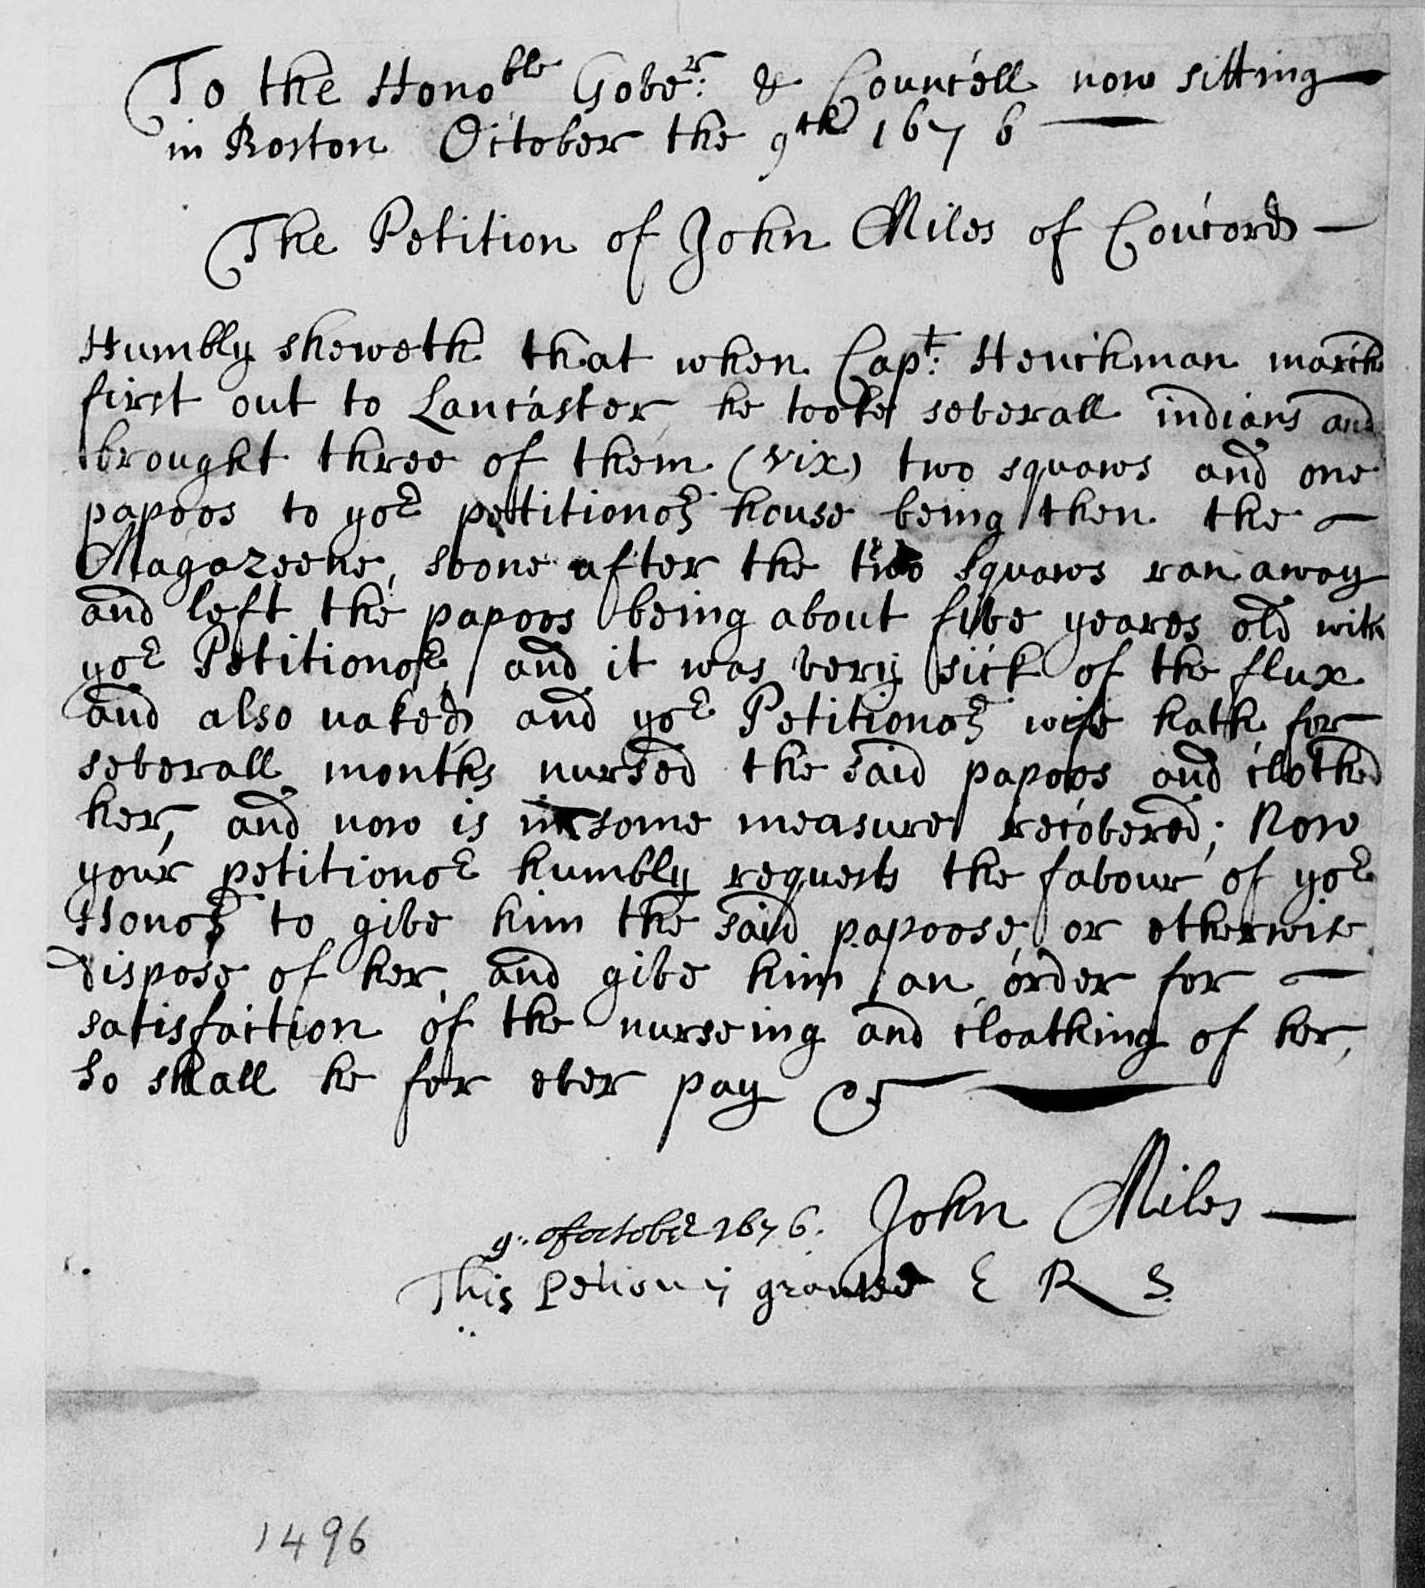 To the Hono^ble Gove^r: & Councell now sitting
in Boston October the 9^th 1676
The Petition of John Miles of Concord
Humbly sheweth that when Cap^t: Henchman march
first out to Lancaster he tooke severall indians and
brought three of them (vix) two squaws and one
papoos to yo^r petitiono^rs house being then the
Magazeene, soone after the two squaws ran away
and left the papoos being about five yeares old with
yo^r Petitiono^r, and it was very sick of the flux
and also naked and yo^r Petitiono^rs wife hath for
severall months nursed the said papoos and clothed
her, and now is in some measure recovered; Now
your petitiono^r humbly requests the favour of yo^r
Hono^rs to give him the said papoose, or otherwise
dispose of her, and give him an order for
satisfaction of the nurseing and cloathing of her,
So shall he for ever pay &
John Miles
9. of october 1676.
This petition is granted E R S
1496